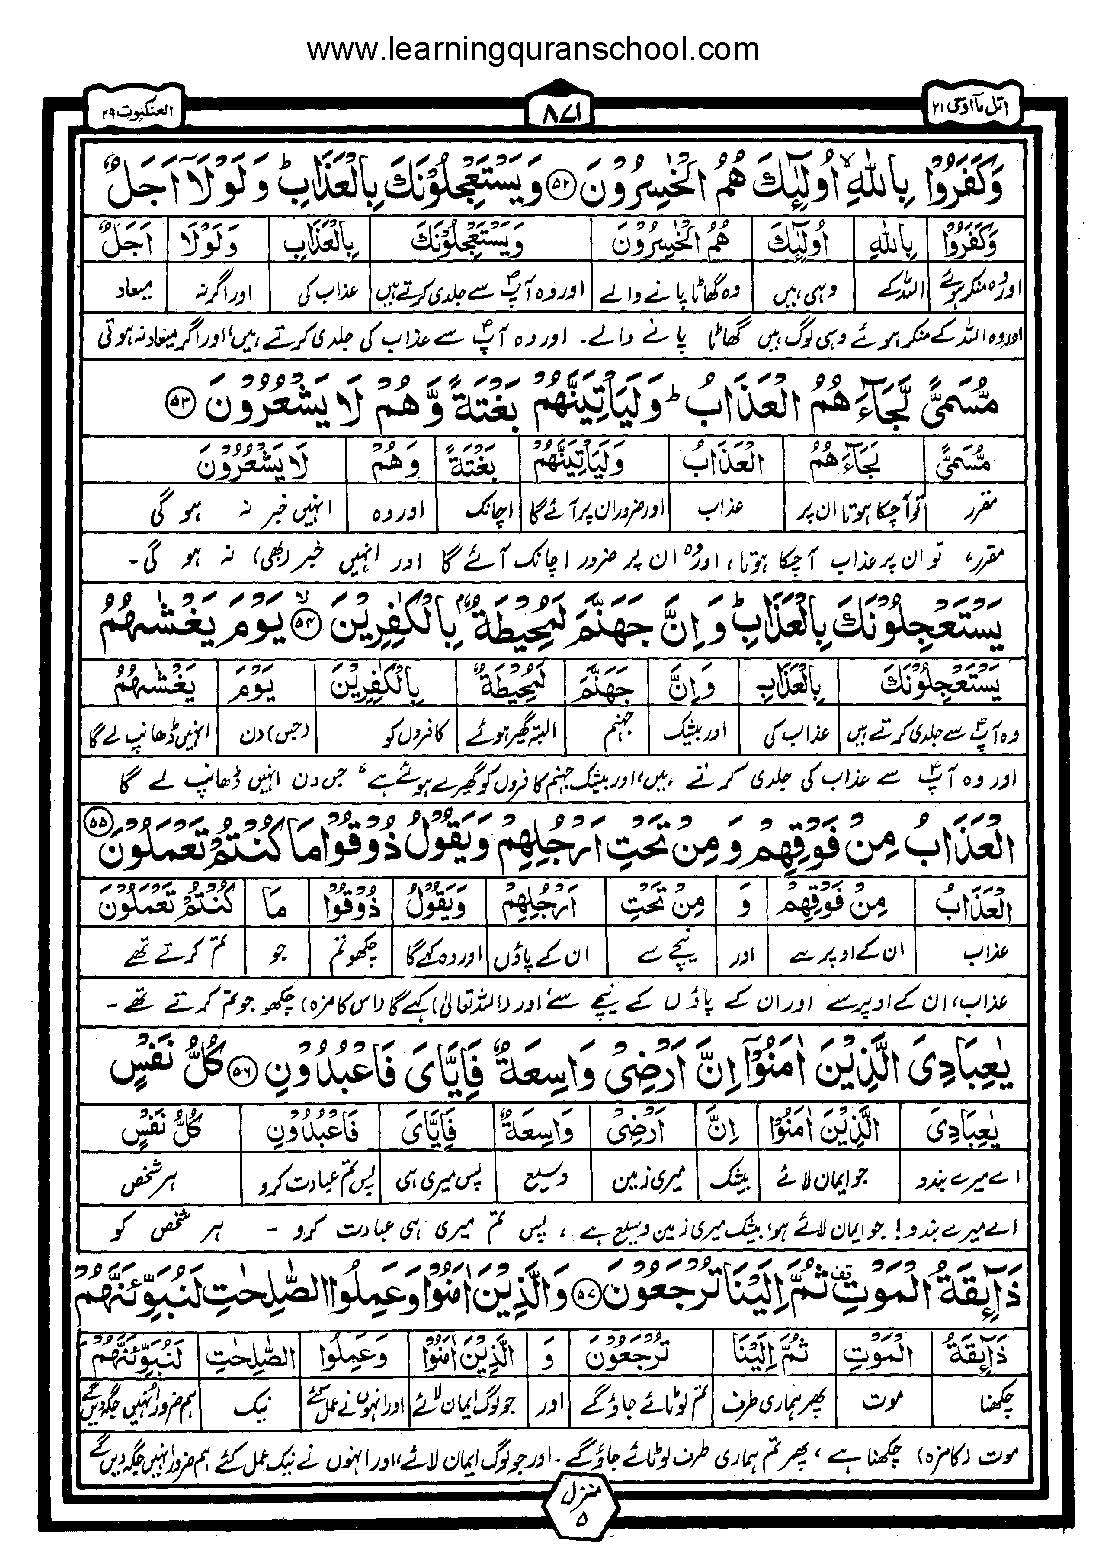 www.learningquranschool.com
اتل مآ اوحی ۲۱
۸۷۱
العنکبوت ۲۹
وَكَفَرُوْا بِاللّٰهِ ۙ اُولٰٓئِكَ هُمُ الْخٰسِرُوْنَ ۝۵۲ وَيَسْتَعْجِلُوْنَكَ بِالْعَذَابِ ؕ وَلَوْلَاۤ اَجَلٌ
وَكَفَرُوْا بِاللّٰهِ اُولٰٓئِكَ هُمُ الْخٰسِرُوْنَ وَيَسْتَعْجِلُوْنَكَ بِالْعَذَابِ وَلَوْلَا اَجَلٌ
اور وہ منکر ہوئے اللہ کے وہی ہیں وہ گھاٹا پانے والے اور وہ آپؐ سے جلدی کرتے ہیں عذاب کی اور اگر نہ میعاد
اور وہ اللہ کے منکر ہوئے وہی لوگ ہیں گھاٹا پانے والے۔ اور وہ آپؐ سے عذاب کی جلدی کرتے ہیں، اور اگر میعاد نہ ہوتی
مُّسَمًّى لَّجَآءَهُمُ الْعَذَابُ ؕ وَلَيَاْتِيَنَّهُمْ بَغْتَةً وَّهُمْ لَا يَشْعُرُوْنَ ۝۵۳
مُّسَمًّى لَجَآءَهُمُ الْعَذَابُ وَلَيَاْتِيَنَّهُمْ بَغْتَةً وَهُمْ لَا يَشْعُرُوْنَ
مقرر تو آچکا ہوتا ان پر عذاب اور ضرور ان پر آئے گا اچانک اور وہ انہیں خبر نہ ہو گی
مقرر، تو ان پر عذاب آچکا ہوتا، اور وہ ان پر ضرور اچانک آئے گا اور انہیں خبر (بھی) نہ ہو گی۔
يَسْتَعْجِلُوْنَكَ بِالْعَذَابِ ؕ وَاِنَّ جَهَنَّمَ لَمُحِيْطَةٌۢ بِالْكٰفِرِيْنَ ۝۵۴ ۙ يَوْمَ يَغْشٰىهُمُ
يَسْتَعْجِلُوْنَكَ بِالْعَذَابِ وَاِنَّ جَهَنَّمَ لَمُحِيْطَةٌ بِالْكٰفِرِيْنَ يَوْمَ يَغْشٰىهُمُ
وہ آپؐ سے جلدی کرتے ہیں عذاب کی اور بیشک جہنم البتہ گھیرے ہوئے کافروں کو (جس) دن انہیں ڈھانپ لے گا
اور وہ آپؐ سے عذاب کی جلدی کرتے ہیں، اور بیشک جہنم کافروں کو گھیرے ہوئے ہے، جس دن انہیں ڈھانپ لے گا
الْعَذَابُ مِنْ فَوْقِهِمْ وَمِنْ تَحْتِ اَرْجُلِهِمْ وَيَقُوْلُ ذُوْقُوْا مَا كُنْتُمْ تَعْمَلُوْنَ ۝۵۵
الْعَذَابُ مِنْ فَوْقِهِمْ وَ مِنْ تَحْتِ اَرْجُلِهِمْ وَيَقُوْلُ ذُوْقُوْا مَا كُنْتُمْ تَعْمَلُوْنَ
عذاب ان کے اوپر سے اور نیچے سے ان کے پاؤں اور وہ کہے گا چکھو تم جو تم کرتے تھے
عذاب، ان کے اوپر سے اور ان کے پاؤں کے نیچے سے، اور (اللہ تعالیٰ) کہے گا (اس کا مزہ) چکھو جو تم کرتے تھے۔
يٰعِبَادِىَ الَّذِيْنَ اٰمَنُوْۤا اِنَّ اَرْضِىْ وَاسِعَةٌ فَاِيَّاىَ فَاعْبُدُوْنِ ۝۵۶ كُلُّ نَفْسٍ
يٰعِبَادِىَ الَّذِيْنَ اٰمَنُوْۤا اِنَّ اَرْضِىْ وَاسِعَةٌ فَاِيَّاىَ فَاعْبُدُوْنِ كُلُّ نَفْسٍ
اے میرے بندو جو ایمان لائے بیشک میری زمین وسیع پس میری ہی پس تم عبادت کرو ہر شخص
اے میرے بندو! جو ایمان لائے ہو، بیشک میری زمین وسیع ہے، پس تم میری ہی عبادت کرو۔ ہر شخص کو
ذَآئِقَةُ الْمَوْتِ ۫ ثُمَّ اِلَيْنَا تُرْجَعُوْنَ ۝۵۷ وَالَّذِيْنَ اٰمَنُوْا وَعَمِلُوا الصّٰلِحٰتِ لَنُبَوِّئَنَّهُمْ
ذَآئِقَةُ الْمَوْتِ ثُمَّ اِلَيْنَا تُرْجَعُوْنَ وَ الَّذِيْنَ اٰمَنُوْا وَعَمِلُوا الصّٰلِحٰتِ لَنُبَوِّئَنَّهُمْ
چکھنا موت پھر ہماری طرف تم لوٹائے جاؤ گے اور جو لوگ ایمان لائے اور انہوں نے عمل کئے نیک ہم ضرور انہیں جگہ دیں گے
موت (کا مزہ) چکھنا ہے، پھر تم ہماری طرف لوٹائے جاؤ گے۔ اور جو لوگ ایمان لائے، اور انہوں نے نیک عمل کئے ہم ضرور انہیں جگہ دیں گے
منزل
۵